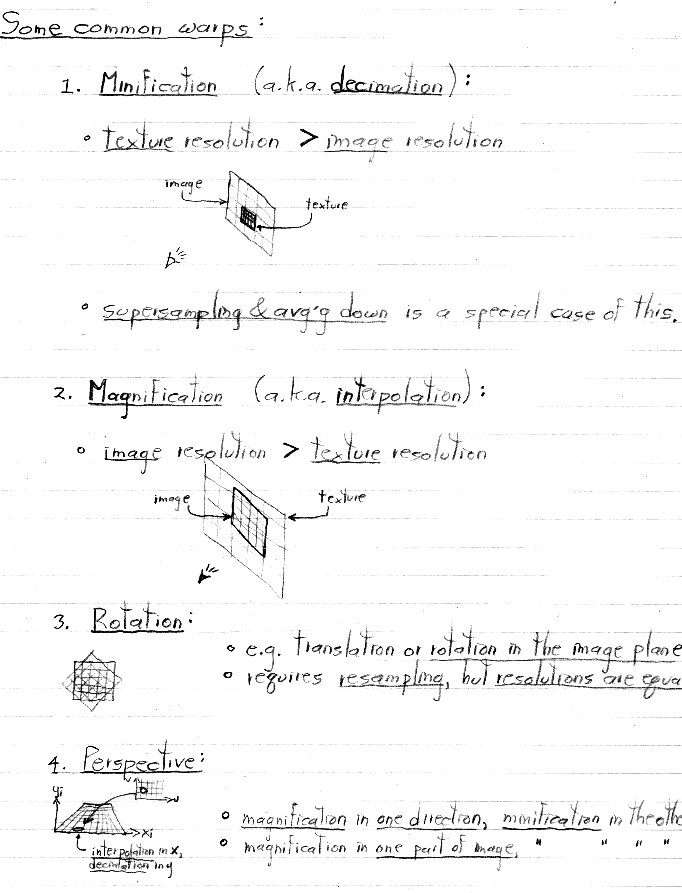 Some common warps:
1. Minification (a.k.a. decimation):
° texture resolution > image resolution
image
texture
° supersampling & avg'g down is a special case of this.
2. Magnification (a.k.a. interpolation):
° image resolution > texture resolution
image
texture
3. Rotation:
° e.g. translation or rotation in the image plane
° requires resampling, but resolutions are equa
4. Perspective:
v
u
yi
xi
interpolation in x,
decimation in y
° magnification in one direction, minification in the othe
° magnification in one part of image, " " " "